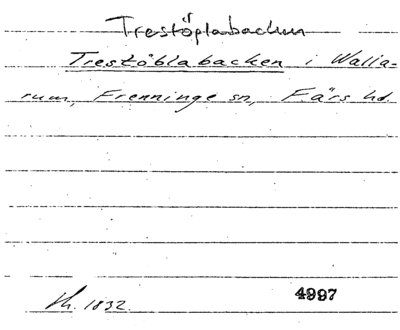 Trestöplabacken
Trestöblabacken i Walla-
rum, Frenninge sn, Färs hd.
1832. 4997